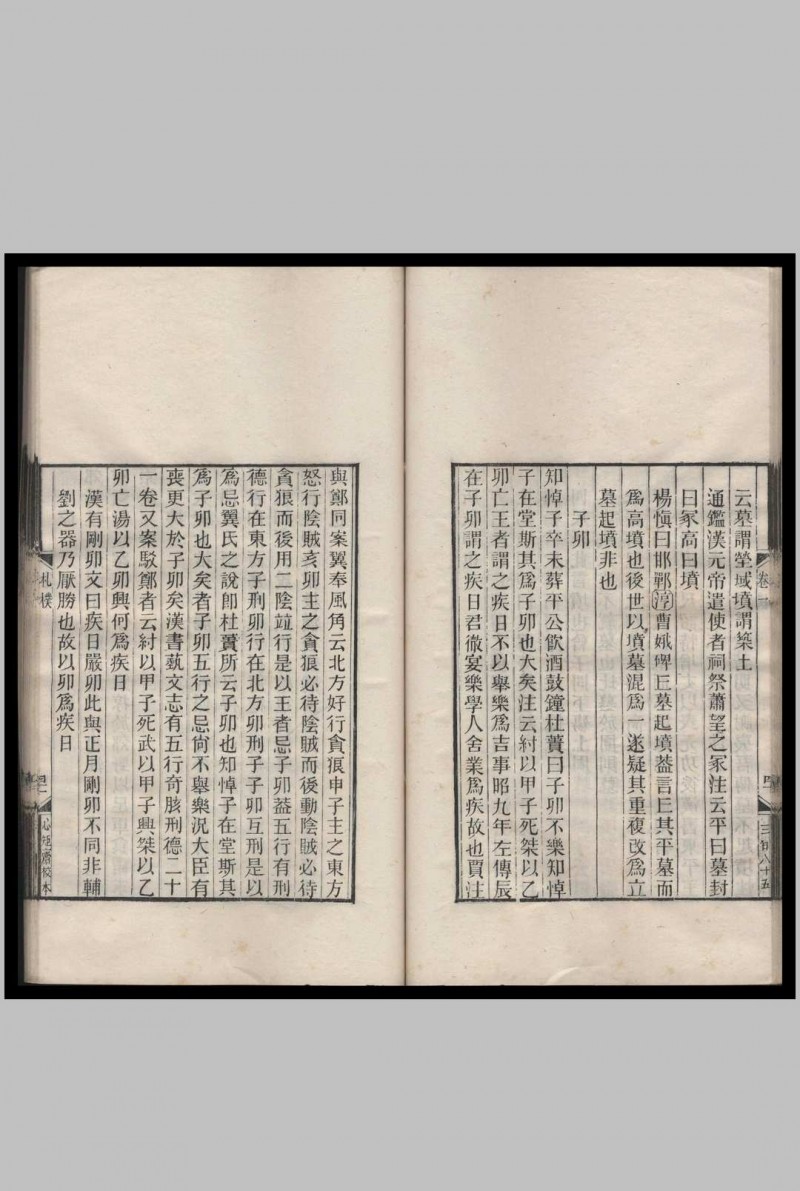 云墓謂塋域墳謂築土
通鑑漢元帝遣使者祠祭蕭望之冢注云平曰墓封
曰冢高曰墳
楊愼曰邯鄲淳曹娥碑丘墓起墳葢言丘其平墓而
爲高墳也後世以墳墓混爲一遂疑其重複改爲立
墓起墳非也
子卯
知悼子卒未葬平公飮酒鼓鐘杜蕢曰子卯不樂知悼
子在堂斯其爲子卯也大矣注云紂以甲子死桀以乙
卯亡王者謂之疾日不以舉樂爲吉事昭九年左傳辰
在子卯謂之疾日君徹宴樂學人舍業爲疾故也賈注
卷一
四
三百八十五
與鄭同案翼奉風角云北方好行貪狼申子主之東方
怒行陰賊亥卯主之貪狼必待陰賊而後動陰賊必待
貪狼而後用二陰竝行是以王者忌子卯葢五行有刑
德行在東方子刑卯行在北方卯刑子子卯互刑是以
爲忌翼氏之說卽杜蕢所云子卯也知悼子在堂斯其
爲子卯也大矣者子卯五行之忌尙不舉樂況大臣有
喪更大於子卯矣漢書蓺文志有五行奇胲刑德二十
一卷又案駁鄭者云紂以甲子死武以甲子興桀以乙
卯亡湯以乙卯興何爲疾日
漢有剛卯文曰疾日嚴卯此與正月剛卯不同非輔
劉之器乃厭勝也故以卯爲疾日
札樸
心矩齋校本